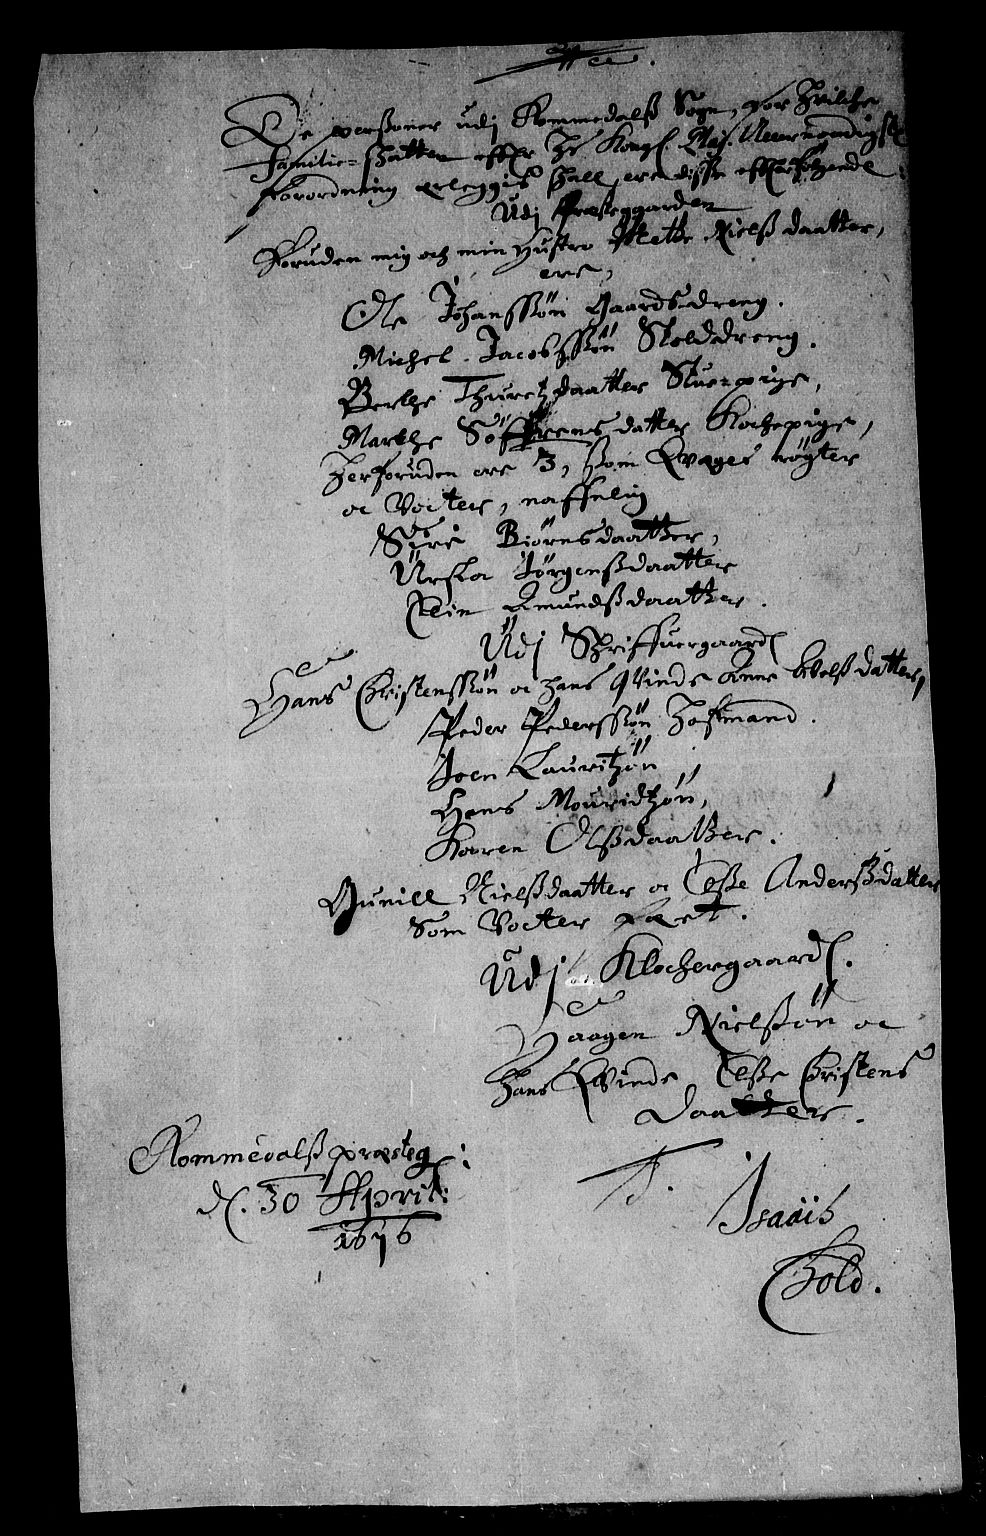 De perßoner udj Rommedalß Sogn, for hvilche
Familie-Skatten effter Hs Kongl Mai. Allernaadigste
Forordning erleggis skall, ere disse effterfølgende:
Udj Præsteggarden
Foruden mig och min hustro Mette Nielß daatter,
ere,
Ole Johanssøn Gaardsdreng.
Michel Jacobssøn Stoldreng.
Berthe Thuretzdaatter Stuepige,
Marthe Söffrensdatter Kochepige,
herforuden ere 3, som Qvæget røgter
oc Vocter, nafflig
Siri Biørnsdaatter,
Ursla Jørgenßdaatter
Elin Amundßdaatter.
Udj Skriffuergaard
Hans Christenssøn oc hans Qvinde Anne Nielß datter,
Peder Pederssøn Hoffmand.
Joen Lauritzøn,
Hans Mouridtzøn,
Karen Olßdaatter.
Gunill Nielßdaatter oc Elsße Anderßdatter
Som Vocter Fæet.
Udj Klochergaard.
Haagen Nielsßøn oc
hans Qvinde Elsße Christens
Daatter.
Rommedalß præsteg:
d. 30 April:
1676
Isaaib
Bold.